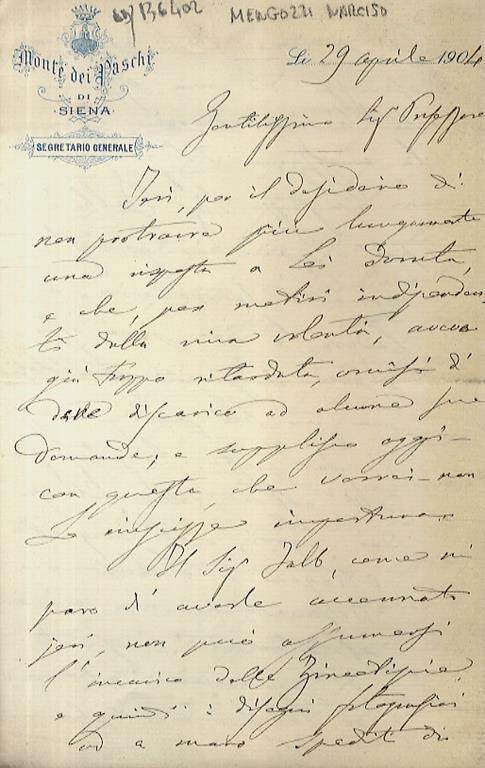 136402 MENGOZZI NARCISO
Monte dei Paschi
DI
SIENA
SEGRETARIO GENERALE
Li 29 aprile 1904
Gentilissimo Sig. Professore
Ieri, per il desiderio di
non protrarre più lungamente
una risposta a Lei dovuta,
e che, per motivi indipenden
ti dalla mia volontà, avevo
già troppo ritardata, omisi di
dare discarico ad alcune sue
domande; e supplisco oggi
con questa, che vorrei non
Le importuna
Il Sig. come mi
pare d' averle accennato
ieri, non può assumersi
l' incarico delle Zincotipie,
e quindi i disegni fotografici
od a mano spediti di